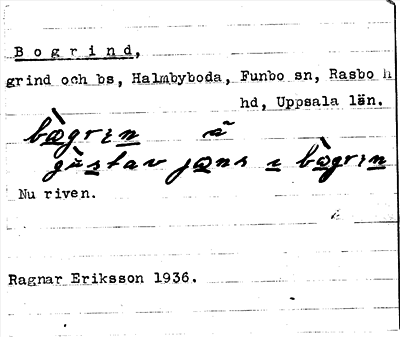 B o g r i n d,
grind och bs, Halmbyboda, Funbo sn, Rasbo h
hd, Uppsala län.
bògrin ã
gùstav jons ı bògrin
Nu riven.
Ragnar Eriksson 1936.